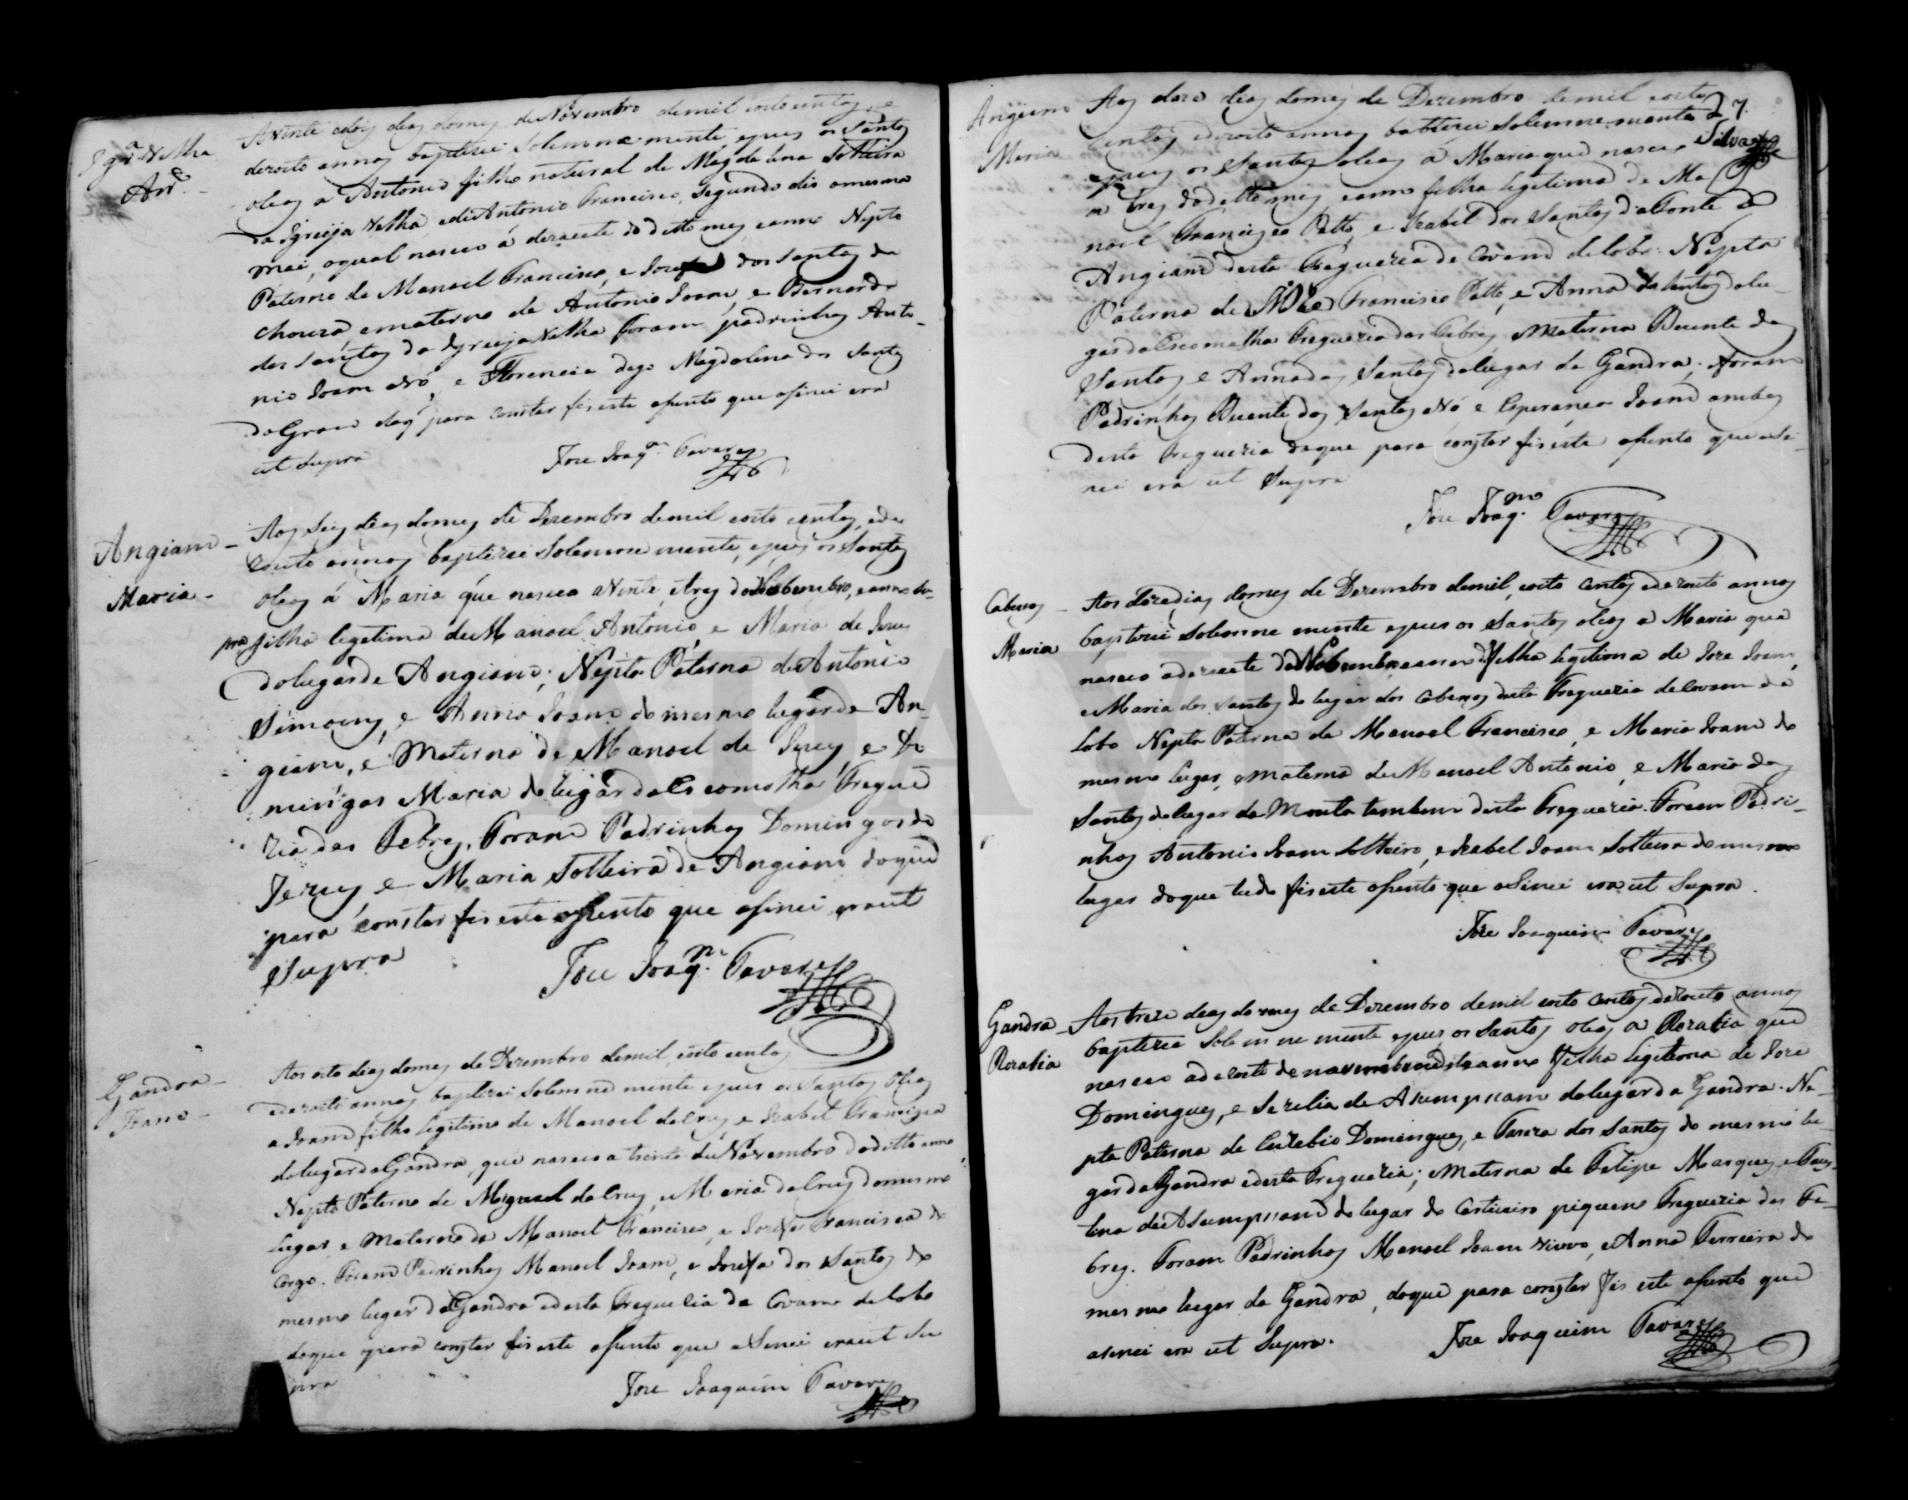 Igrª Velha
Antº
A vinte e dois dias do mes de Novembro de mil oito centos, e
dezoito annos baptizei solemne mente, e pus os Santos
oleos a Antonio filho natural de Magdalena solteira
da Igreija Velha e de Antonio Francisco, segundo dis a mesma
mai, o qual nasceo á dezacete do ditto mes e anno Nepto
Paterno de Manoel Francisco, e Josefa dos Santos da
Chouza, e materno de Antonio Joam, e Bernarda
dos Santos da Igreija Velha foram padrinhos Anto-
nio Joam, e Florencia digo Magdalena dos Santos
do que para constar fis este asento que asinei era
ut supra
Joze Joaqm Tavares
Angiam -
Maria -
Aos seis dias do mes de Dezembro de mil oito centos, e de
zoito annos baptizei solemne mente, e pus os Santos
oleos á Maria que nasceo a vinte e tres de Nobembro, e anno su-
pra filha legitima de Manoel Antonio, e Maria de Jezus
do lugar de Angiam; Nepta Paterna de Antonio
Simoens, e Anna Joam do mesmo lugar de An-
giam, e Materna de Manoel de Jezus, e Do
mingas Maria do lugar da Escomalha Fregue
zia das Febres. Foram Padrinhos Domingos de
Jezus, e Maria Solteira de Angiam do que
para constar fis este asento que asinei era ut
Supra
Joze Joaqm Tavares
Gandra -
Joam -
Aos oito dias do mes de Dezembro de mil oito centos
e dezoito annos baptizei solemne mente e pus os Santos Oleos
a Joam filho legitimo de Manoel da Cruz, e Izabel Francisca
do lugar da Gandra, que nasceo a trinta de Novembro do ditto anno
Nepto Paterno de Miguel da Cruz, e Maria da Cruz do mesmo
lugar, e Materno de Manoel Francisco, e Josefa Francisca do
Corgo. Foram Padrinhos Manoel Joam, e Josefa dos Santos do
mesmo lugar da Gandra e desta Freguezia da Covam do Lobo
do que para constar fis este asento que asinei era ut Su
pra
Joze Joaquim Tavares
27.
Silva
Angiam
Maria
Aos doze dias do mes de Dezembro de mil oito
centos e dezoito annos babtizei solemne mente
e pus os Santos oleos á Maria que nasceo
a tres do ditto mes, e anno filha legitima de Ma
noel Francisco Patto, e Izabel dos Santos da Fonte de
Angiam desta Freguezia de Covam do Lobo. Nepta
Paterna de Francisco Patto, e Anna da Santos do lu-
gar da Escomalha Freguezia das Febres, Materna Vicente dos
Santos, e Anna dos Santos do lugar da Gandra. Foram
Padrinhos Vicente dos Santos Avó e Esperança Joam ambos
desta Freguezia do que para constar fis este asento que asi-
nei era ut Supra
Joze Joaqm Tavares
Cabesos -
Maria
Aos doze dias do mes de Dezembro de mil, oito centos e dezoito annos
baptizei solemne mente e pus os Santos oleos a Maria que
nasceo a dezacete de Nobembro filha legitima de Joze Joam,
e Maria dos Santos do lugar dos Cabesos desta Freguezia de Covam do
Lobo Nepta Paterna de Manoel Francisco, e Maria Joam do
mesmo lugar, e materna de Manoel Antonio, e Maria dos
Santos do lugar da Monta tambem desta Freguezia. Foram Padri-
nhos Antonio Joam solteiro, e Izabel Joam Solteira do mesmo
lugar do que tudo fis este asento que asinei era ut Supra.
Joze Joaquim Tavares
Gandra -
Rozalia
Aos treze dias do mes de Dezembro de mil oito centos dezouto annos
baptizei Solemne mente e pus os Santos oleos a Rozalia que
nasceo a dezoite de novembro e ditto anno filha legitima de Joze
Domingues, e Serilia de Asumpscam do lugar da Gandra. Ne-
pta Paterna de Euzebio Domingues, e Tareza dos Santos do mesmo lu-
gar da Gandra e desta Freguezia; Materna de Felipe Marques, e Faus-
tina de Asumpscam do lugar do Corticeiro piqueno Freguezia das Fe-
bres. Foram Padrinhos Manoel Joam viuvo, e Anna Ferreira do
mesmo lugar da Gandra, do que para constar fis este asento que
asinei era ut Supra.
Joze Joaquim Tavares